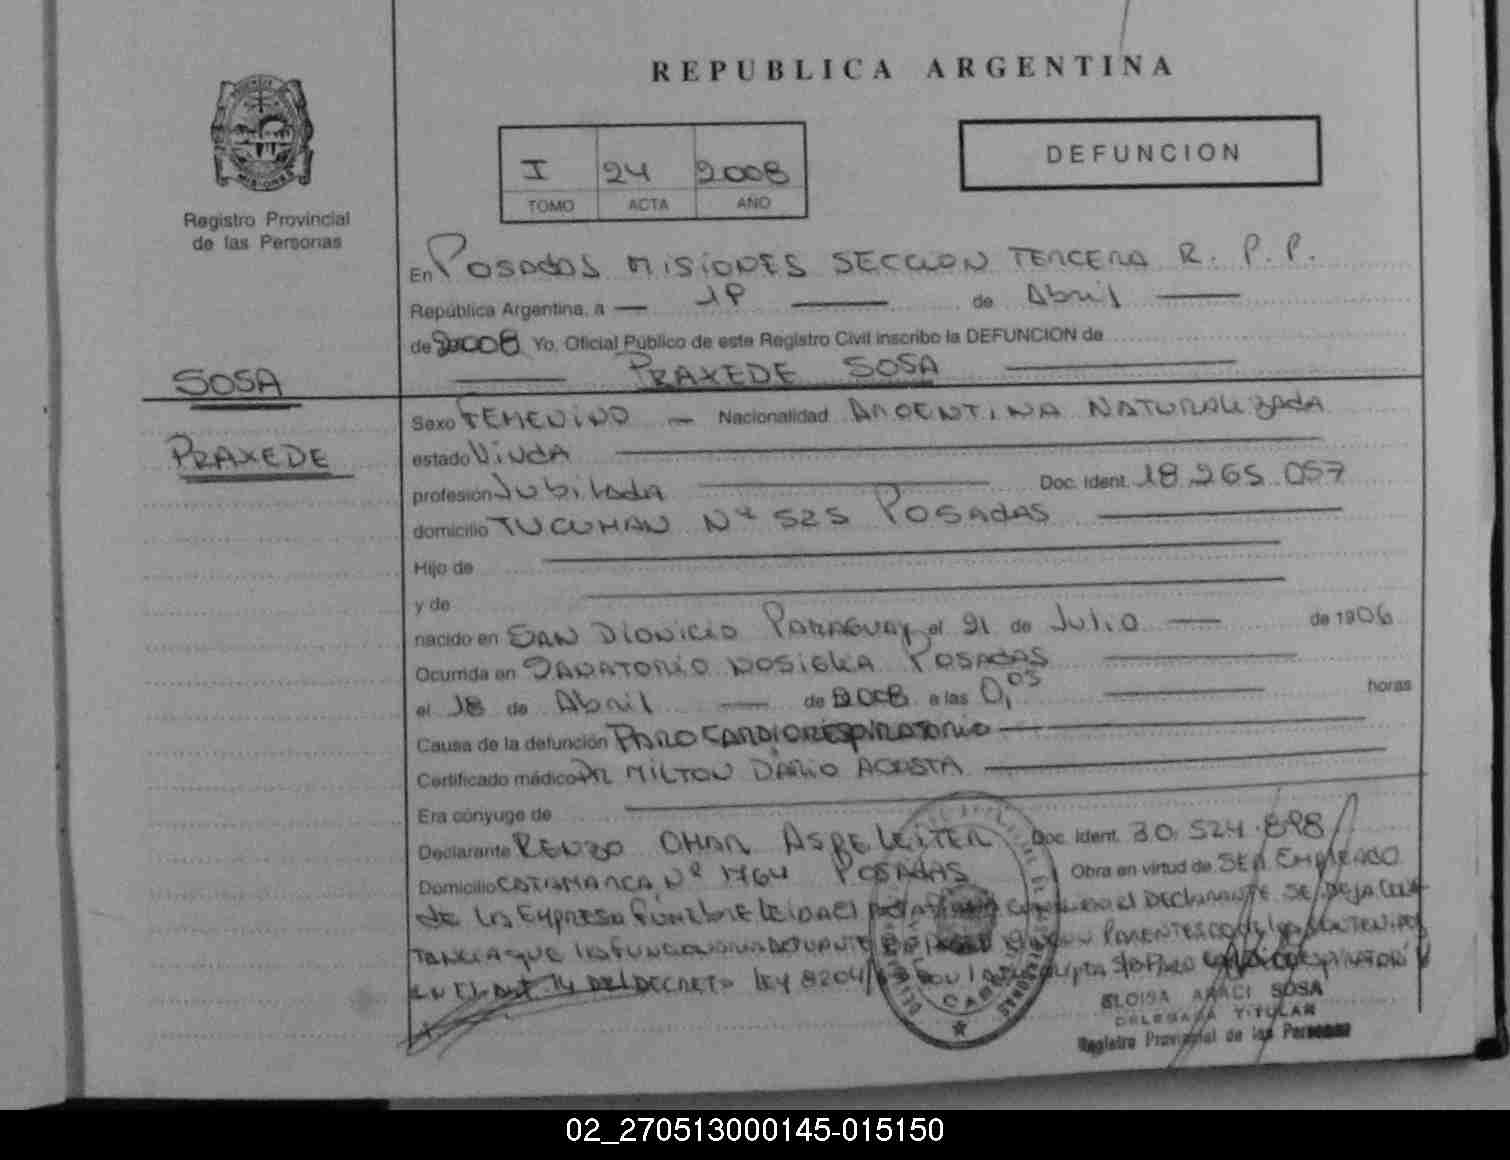 REPUBLICA ARGENTINA
I 24 2008
TOMO ACTA AÑO
DEFUNCION
MISIONES
Registro Provincial
de las Personas
En POSADAS MISIONES SECCION TERCERA R. P. P.
República Argentina, a — 18 — de Abril —
de 2008 Yo, Oficial Público de este Registro Civil inscribo la DEFUNCION de
PRAXEDE SOSA
SOSA
PRAXEDE
Sexo FEMENINO — Nacionalidad ARGENTINA NATURALIZADA
estado VIUDA
profesión Jubilada Doc. Ident. 18.265.057
domicilio TUCUMAN Nº 525 POSADAS
Hijo de
y de
nacido en SAN DIONICIO PARAGUAY el 21 de Julio — de 1906
Ocurrida en SANATORIO NOSIGLIA POSADAS
el 18 de Abril — de 2008 a las 0,05 horas
Causa de la defunción PARO CARDIORESPIRATORIO
Certificado médico DR MILTON DARIO ACOSTA
Era cónyuge de
Declarante RENZO OMAR ASPELEITER Doc. Ident. 30.524.898
Domicilio CATAMARCA Nº 1764 POSADAS Obra en virtud de SER EMPLEADO
de la Empresa Fúnebre Leida el Acta firma conmigo el DECLARANTE SE DEJA CONS
TANCIA QUE PARENTESCO
EN EL Art 14 DEL DECRETO LEY 8204/
ELOISA ARACI SOSA
DELEGADA TITULAR
Registro Provincial de las Personas
02_270513000145-015150